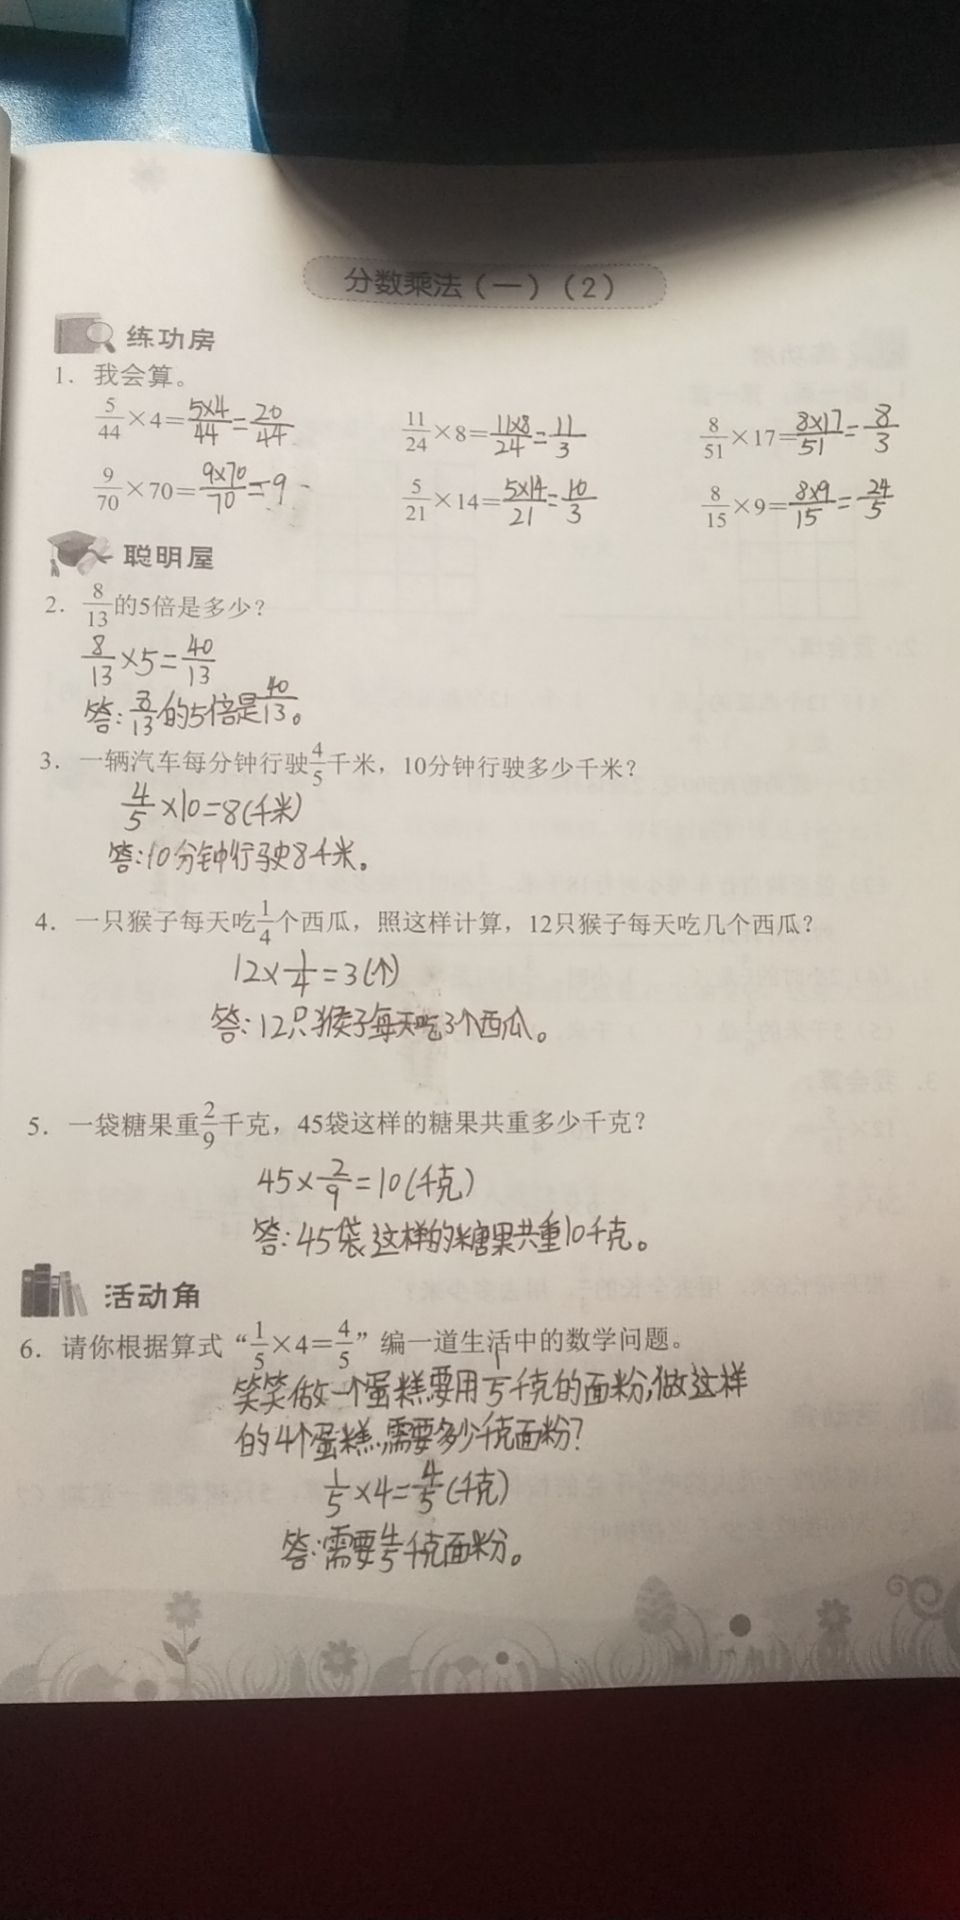 分数乘法（一）（2）
练功房
1. 我会算。
5/44×4=5×4/44=20/44 11/24×8=11×8/24=11/3 8/51×17=8×17/51=8/3
9/70×70=9×70/70=9 5/21×14=5×14/21=10/3 8/15×9=8×9/15=24/5
聪明屋
2. 8/13的5倍是多少？
8/13×5=40/13
答：8/13的5倍是40/13。
3. 一辆汽车每分钟行驶4/5千米，10分钟行驶多少千米？
4/5×10=8(千米)
答：10分钟行驶8千米。
4. 一只猴子每天吃1/4个西瓜，照这样计算，12只猴子每天吃几个西瓜？
12×1/4=3(个)
答：12只猴子每天吃3个西瓜。
5. 一袋糖果重2/9千克，45袋这样的糖果共重多少千克？
45×2/9=10(千克)
答：45袋这样的糖果共重10千克。
活动角
6. 请你根据算式“1/5×4=4/5”编一道生活中的数学问题。
笑笑做一个蛋糕要用1/5千克的面粉，做这样
的4个蛋糕，需要多少千克面粉？
1/5×4=4/5(千克)
答：需要4/5千克面粉。